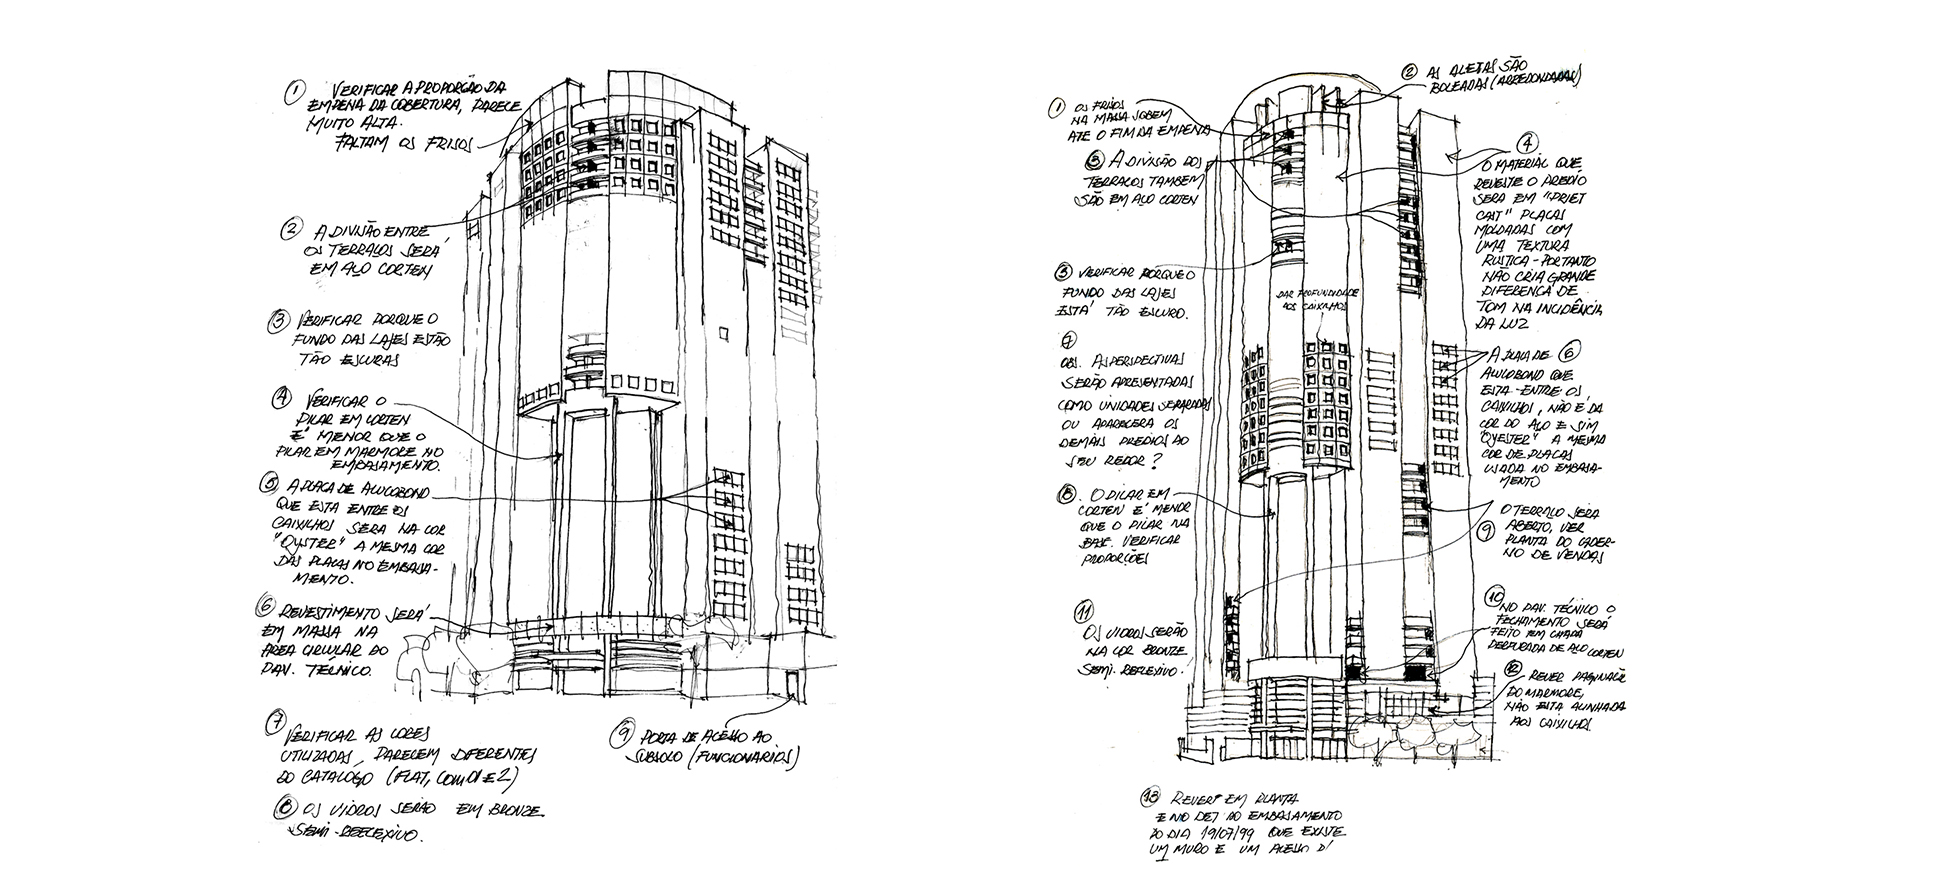 ① VERIFICAR A PROPORÇÃO DA
EMPENA DA COBERTURA, PARECE
MUITO ALTA.
FALTAM OS FRISOS
② A DIVISÃO ENTRE
OS TERRAÇOS SERÁ
EM AÇO CORTEN
③ VERIFICAR PORQUE O
FUNDO DAS LAJES ESTÃO
TÃO ESCURAS
④ VERIFICAR O
PILAR EM CORTEN
É MENOR QUE O
PILAR EM MARMORE NO
EMBASAMENTO.
⑤ A PLACA DE ALUCOBOND
QUE ESTA ENTRE OS
CAIXILHOS SERA NA COR
"OYSTER" A MESMA COR
DAS PLACAS NO EMBASA-
MENTO.
⑥ REVESTIMENTO SERÁ
EM MASSA NA
AREA CIRCULAR DO
PAV. TÉCNICO.
⑦ VERIFICAR AS CORES
UTILIZADAS, PARECEM DIFERENTES
DO CATALOGO (FLAT, COM 01 E 2)
⑧ OS VIDROS SERÃO EM BRONZE
SEMI-REFLEXIVO.
⑨ PORTA DE ACESSO AO
SUBSOLO (FUNCIONARIOS)
① OS FRISOS
NA MASSA SOBEM
ATE O FIM DA EMPENA
② AS ALETAS SÃO
BOLEADAS (ARREDONDADAS)
③ A DIVISÃO DOS
TERRAÇOS TAMBEM
SÃO EM AÇO CORTEN
④
O MATERIAL QUE
REVESTE O PREDIO
SERA EM "PRIET
CAST" PLACAS
MOLDADAS COM
UMA TEXTURA
RUSTICA - PORTANTO
NÃO CRIA GRANDE
DIFERENÇA DE
TOM NA INCIDÊNCIA
DA LUZ
⑤ VERIFICAR PORQUE O
FUNDO DAS LAJES
ESTÁ TÃO ESCURO.
DAR PROFUNDIDADE
AOS CAIXILHOS
A PLACA DE ⑥
ALUCOBOND QUE
ESTA ENTRE OS
CAIXILHOS, NÃO É DA
COR DO AÇO E SIM
"OYSTER" A MESMA
COR DE PLACAS
USADA NO EMBASA-
MENTO
⑦
OBS. AS PERSPECTIVAS
SERÃO APRESENTADAS
COMO UNIDADES SEPARADAS
OU APARECERA OS
DEMAIS PREDIOS AO
SEU REDOR?
⑧. O PILAR EM
CORTEN É MENOR
QUE O PILAR NA
BASE. VERIFICAR
PROPORÇÕES
⑨
O TERRAÇO SERA
ABERTO, VER
PLANTA DO CADER-
NO DE VENDAS
⑩ NO PAV. TÉCNICO O
FECHAMENTO SERÁ
FEITO EM CHAPA
PERFURADA DE AÇO CORTEN
⑪
OS VIDROS SERÃO
NA COR BRONZE
SEMI-REFLEXIVO.
⑫ REVER PAGINAÇÃO
DO MARMORE,
NÃO ESTA ALINHADA
AOS CAIXILHOS.
⑬ REVER EM PLANTA
E NO DET DO EMBASAMENTO
DO DIA 19/07/99 QUE EXISTE
UM MURO E UM ACESSO